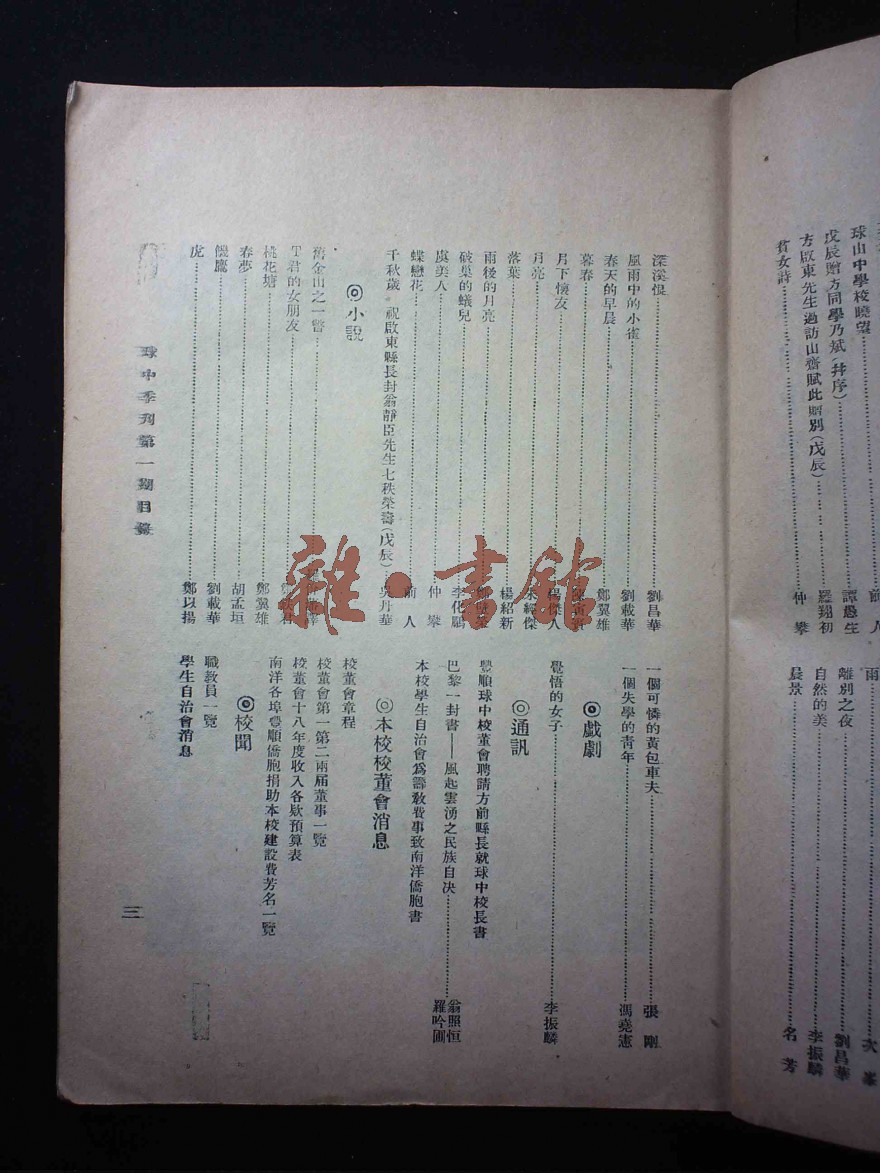 球山中學校曉望……前人
戊辰贈方同學乃斌(幷序)……譚愚生
方啟東先生過訪山齋賦此贈別(戊辰)……羅翔初
貧女詩……仲攀
雨……次峯
離別之夜……劉昌華
自然的美……李振麟
晨景……名芳
深溪恨……劉昌華
風雨中的小雀……劉載華
春天的早晨……鄭翼雄
暮春……陳寅賓
月下懷友……楊傑人
月亮……朱經傑
落葉……楊紹新
雨後的月亮
破巢的蟻兒……李化鵬
虞美人……仲攀
蝶戀花……前人
千秋歲 祝啟東縣長封翁靜臣先生七秩榮壽(戊辰)……吳丹華
◎小說
舊金山之一瞥
君的女朋友
桃花塘……鄭翼雄
春夢……胡孟垣
饑鷹……劉載華
虎……鄭以揚
一個可憐的黃包車夫……張剛
一個失學的靑年……馮堯憲
◎戲劇
覺悟的女子……李振麟
◎通訊
豐順球中校董會聘請方前縣長就球中校長書
巴黎一封書——風起雲湧之民族自决……翁照恒 羅吟圃
本校學生自治會爲籌教費事致南洋僑胞書
◎本校校董會消息
校董會章程
校董會第一第二兩届董事一覽
校董會十八年度收入各欵預算表
南洋各埠豐順僑胞捐助本校建設費芳名一覽
◎校聞
職教員一覽
學生自治會消息
球中季刋第一期目錄
三
雜·書館